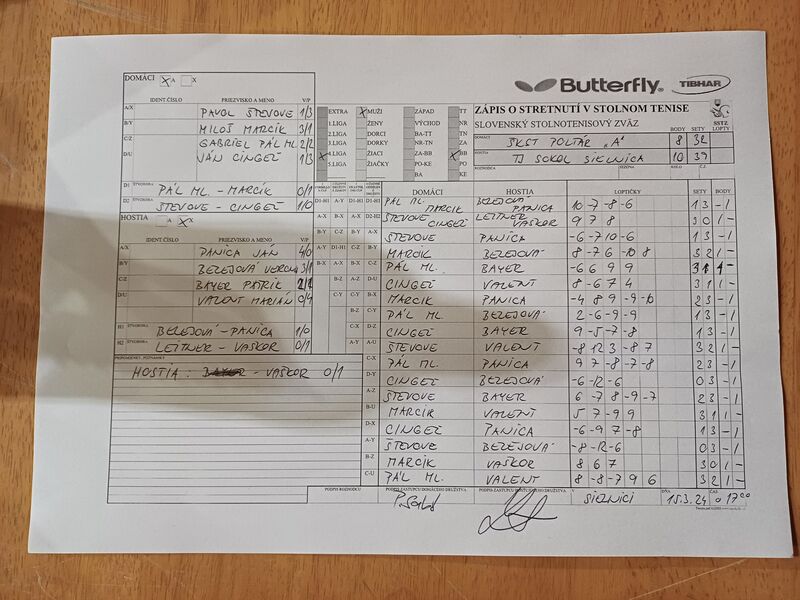 DOMÁCI X A X
IDENT.ČÍSLO PRIEZVISKO A MENO V/P
A/X PAVOL ŠTEVOVE 1/3
B/Y MILOŠ MARCÍK 3/1
C/Z GABRIEL PÁL ML. 2/2
D/U JÁN CINGEĽ 1/3
D1 ŠTVORHRA PÁL ML. - MARCÍK 0/1
D2 ŠTVORHRA ŠTEVOVE - CINGEĽ 1/0
HOSTIA A X X
IDENT.ČÍSLO PRIEZVISKO A MENO V/P
A/X PANICA JÁN 4/0
B/Y BEŁEJOVÁ 3/1
C/Z BAYER PATRIK
D/U VALENT MARIÁN 0/4
H1 ŠTVORHRA BEŁEJOVÁ - PANICA 1/0
H2 ŠTVORHRA LEITNER - VAŠKOR 0/1
PRIPOMIENKY, POZNÁMKY
HOSTIA : - VAŠKOR 0/1
EXTRA X MUŽI ZÁPAD TT
1.LIGA ŽENY VÝCHOD NR
2.LIGA DORCI BA-TT TN
3.LIGA DORKY NR-TN ZA
X 4.LIGA ŽIACI ZA-BB X BB
5.LIGA ŽIAČKY PO-KE PO
BA KE
Butterfly
TIBHAR
ZÁPIS O STRETNUTÍ V STOLNOM TENISE
SLOVENSKÝ STOLNOTENISOVÝ ZVÄZ
SSTZ
BODY SETY LOPTY
DOMÁCI ŠKST POLTÁR „A" 8 32
HOSTIA TJ SOKOL SIELNICA 10 39
ROZHODCA KOLO Č.Z.
DOMÁCI HOSTIA LOPTIČKY SETY BODY
D1-H1 PÁL ML. MARCÍK BEŁEJOVÁ PANICA 10 -7 -8 -6 1 3 -1
D2-H2 ŠTEVOVE CINGEĽ LEITNER VAŠKOR 9 7 8 3 0 1 -
ŠTEVOVE PANICA -6 -7 10 -6 1 3 -1
MARCÍK BEŁEJOVÁ 8 -7 6 -10 8 3 2 1 -
PÁL ML. BAYER -6 6 9 9 3 1 1 -
CINGEĽ VALENT 8 -6 7 4 3 1 1 -
MARCÍK PANICA -4 8 9 -9 -10 2 3 -1
PÁL ML. BEŁEJOVÁ 2 -6 -9 -9 1 3 -1
CINGEĽ BAYER 9 -5 -7 -8 1 3 -1
ŠTEVOVE VALENT -8 12 3 -8 7 3 2 1 -
C-X PÁL ML. PANICA 9 7 -8 -7 -8 2 3 -1
D-Y CINGEĽ BEŁEJOVÁ -6 -12 -6 0 3 -1
A-Z ŠTEVOVE BAYER 6 -7 8 -9 -7 2 3 -1
B-U MARCÍK VALENT 5 7 -9 9 3 1 1 -
D-X CINGEĽ PANICA -6 -9 7 -8 1 3 -1
A-Y ŠTEVOVE BEŁEJOVÁ -8 -12 -6 0 3 -1
B-Z MARCÍK VAŠKOR 8 6 7 3 0 1 -
C-U PÁL ML. VALENT 8 -8 -7 9 6 3 2 1 -
PODPIS ROZHODCU PODPIS ZÁSTUPCU DOMÁCEHO DRUŽSTVA PODPIS ZÁSTUPCU HOSŤUJÚCEHO DRUŽSTVA V SIELNICI DŇA 15.3.24 ČAS o 17 00